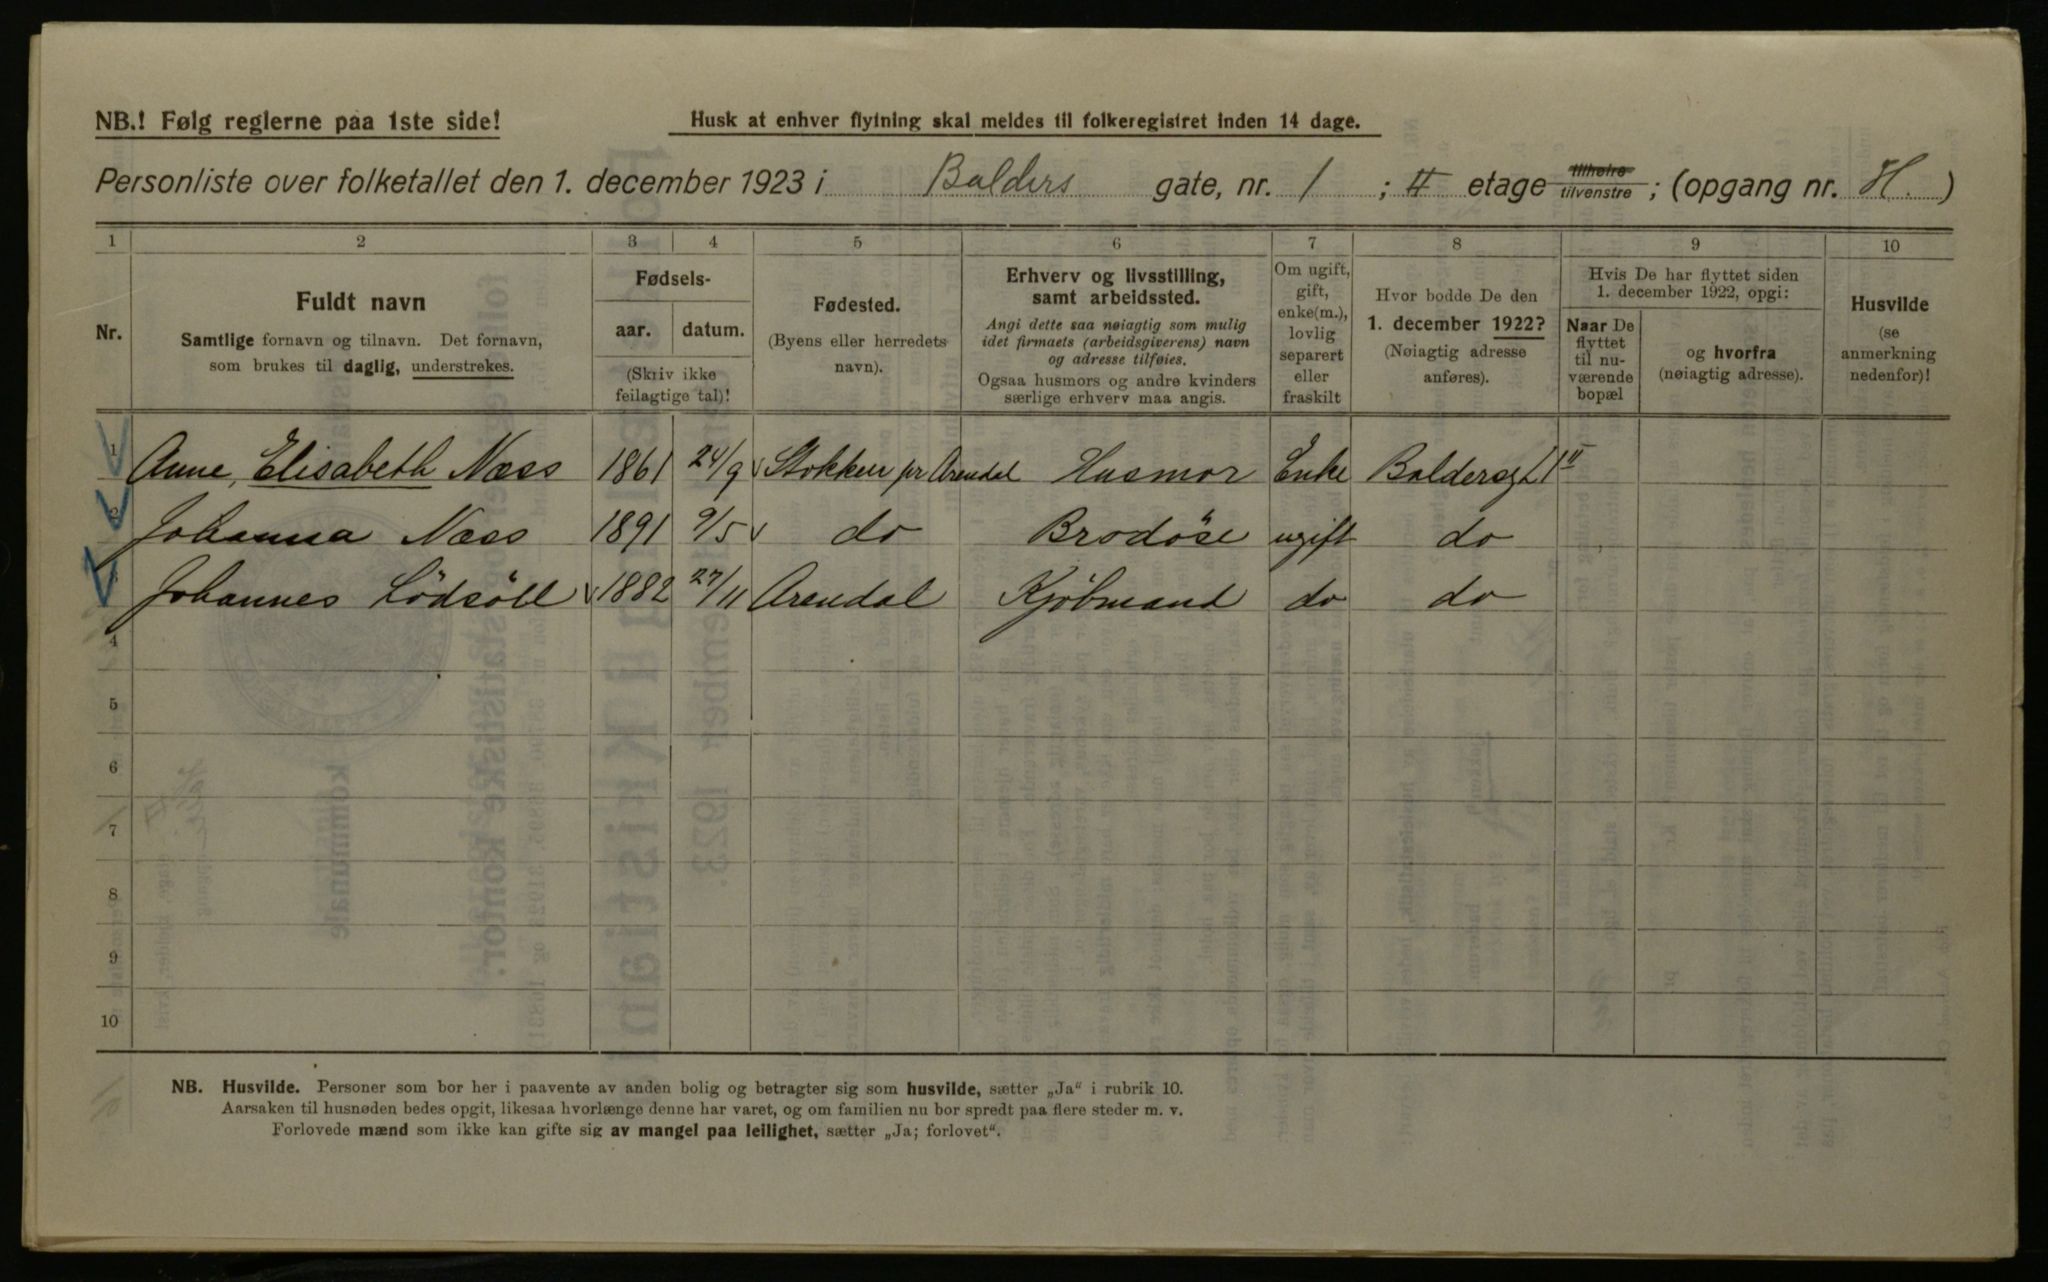 NB.! Følg reglerne paa 1ste side!
Husk at enhver flytning skal meldes til folkeregistret inden 14 dage.
Personliste over folketallet den 1. december 1923 i Balders gate, nr. 1 ; II etage tilhøire tilvenstre ; (opgang nr. H. )
1 2 3 4 5 6 7 8 9 10
Nr.
Fuldt navn
Samtlige fornavn og tilnavn. Det fornavn,
som brukes til daglig, understrekes.
Fødsels-
aar. datum.
(Skriv ikke
feilagtige tal)!
Fødested.
(Byens eller herredets
navn).
Erhverv og livsstilling,
samt arbeidssted.
Angi dette saa nøiagtig som mulig
idet firmaets (arbeidsgiverens) navn
og adresse tilføies.
Ogsaa husmors og andre kvinders
særlige erhverv maa angis.
Om ugift,
gift,
enke(m.),
lovlig
separert
eller
fraskilt
Hvor bodde De den
1. december 1922?
(Nøiagtig adresse
anføres).
Hvis De har flyttet siden
1. december 1922, opgi:
Naar De
flyttet
til nu-
værende
bopæl
og hvorfra
(nøiagtig adresse).
Husvilde
(se
anmerkning
nedenfor)!
1 Anne, Elisabeth Næss 1861 24/9 Stokken pr Arendal Husmor Enke Baldersgt 1 II
2 Johanna Næss 1891 9/5 do Brodöse ugift do
3 Johannes Lödsöll 1882 27/11 Arendal Kjöbmand do do
4
5
6
7
8
9
10
NB. Husvilde. Personer som bor her i paavente av anden bolig og betragter sig som husvilde, sætter „Ja“ i rubrik 10.
Aarsaken til husnøden bedes opgit, likesaa hvorlænge denne har varet, og om familien nu bor spredt paa flere steder m. v.
Forlovede mænd som ikke kan gifte sig av mangel paa leilighet, sætter „Ja; forlovet“.